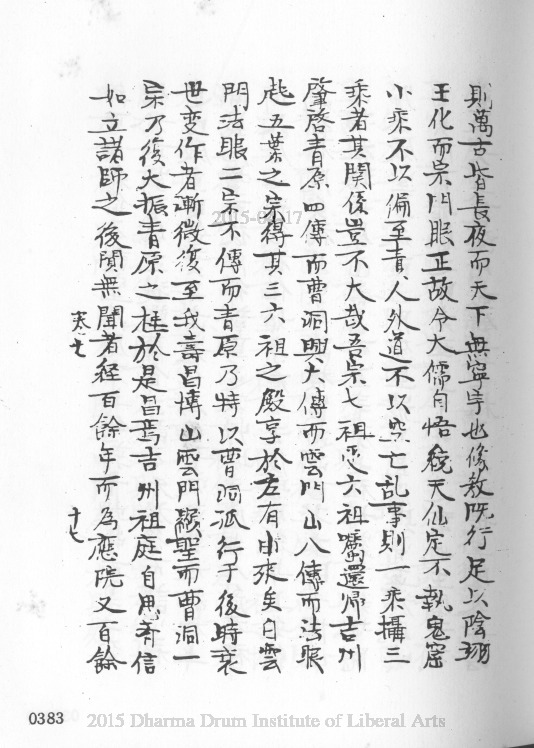 則萬古皆長夜而天下無寧宇也像教既行足以陰翊
王化而宗門眼正故令大儒自悟統天仙定不執鬼窟
小乘不以偏至責人外道不以空亡乱事則一乘攝三
乘者其関係豈不大哉吾宗七祖受六祖囑還帰吉州
肇啓青原四傳而曹洞興六傳而雲门山八傳而法眼
起五葉之宗得其三六祖之殿享於左有由來矣自雲
門法眼二宗不傳而青原乃特以曹洞孤行于後時衰
世变作者漸微復至我壽昌博山雲門顯聖而曹洞一
宗乃復大振青原之於是昌焉吉州祖庭自思齊信
如立諸師之後闃無聞者経百餘年而為應院又百餘
寒七
十七
2015-02-17
0383
2015 Dharma Drum Institute of Liberal Arts